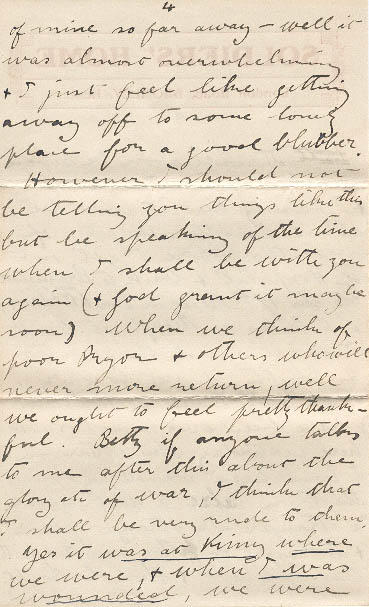 4
of mine so far away - well it
was almost overwhelming
+ I just feel like getting
away off to some lonely
place for a good blubber.
However I should not
be telling you things like this
but be speaking of the time
when I shall be with you
again (+ God grant it may be
soon) When we think of
poor Pryor + others who will
never more return, well
we ought to feel pretty thank-
ful. Betty if anyone talks
to me after this about the
glory etc of war, I think that
I shall be very rude to them.
Yes it was at Kinny where
we were, + when I was
wounded, we were
SOLDIERS' HOME